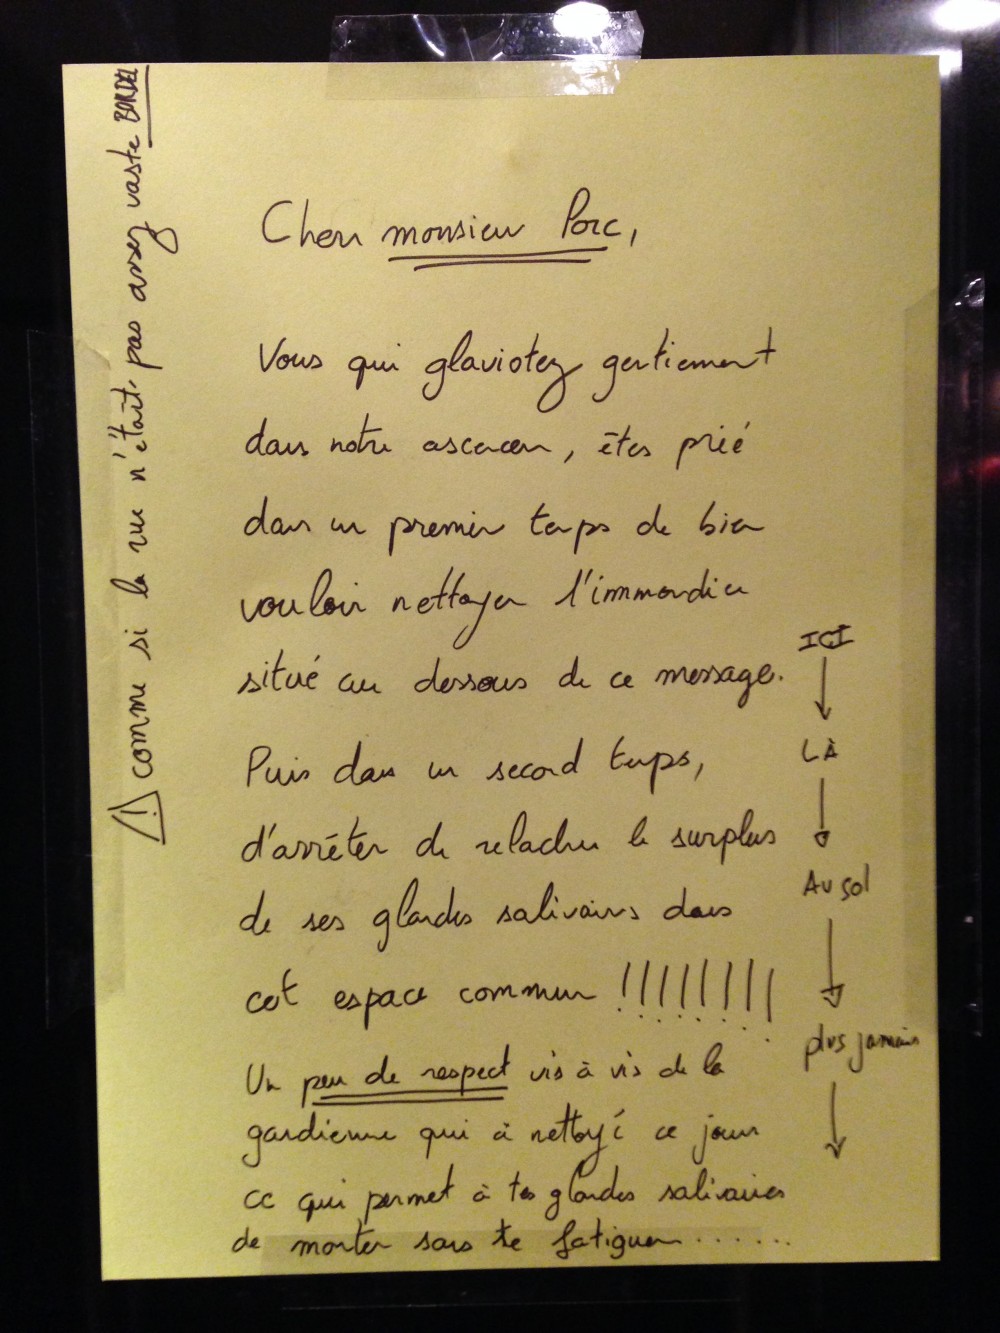 Cher monsieur Porc,
Vous qui glaviotez gentiement
dans notre ascenceur, êtes prié
dans un premier temps de bien
vouloir nettoyer l'immondice
situé au dessous de ce message.
Puis dans un second temps,
d'arrêter de relacher le surplus
de ses glandes salivaires dans
cet espace commun !!!!!!!!
Un peu de respect vis à vis de la
gardienne qui à nettoyé ce jour
ce qui permet à tes glandes salivaires
de monter sans te fatiguer.......
ICI
LÀ
AU sol
plus jamais
⚠ comme si la rue n'était pas assez vaste BORDEL